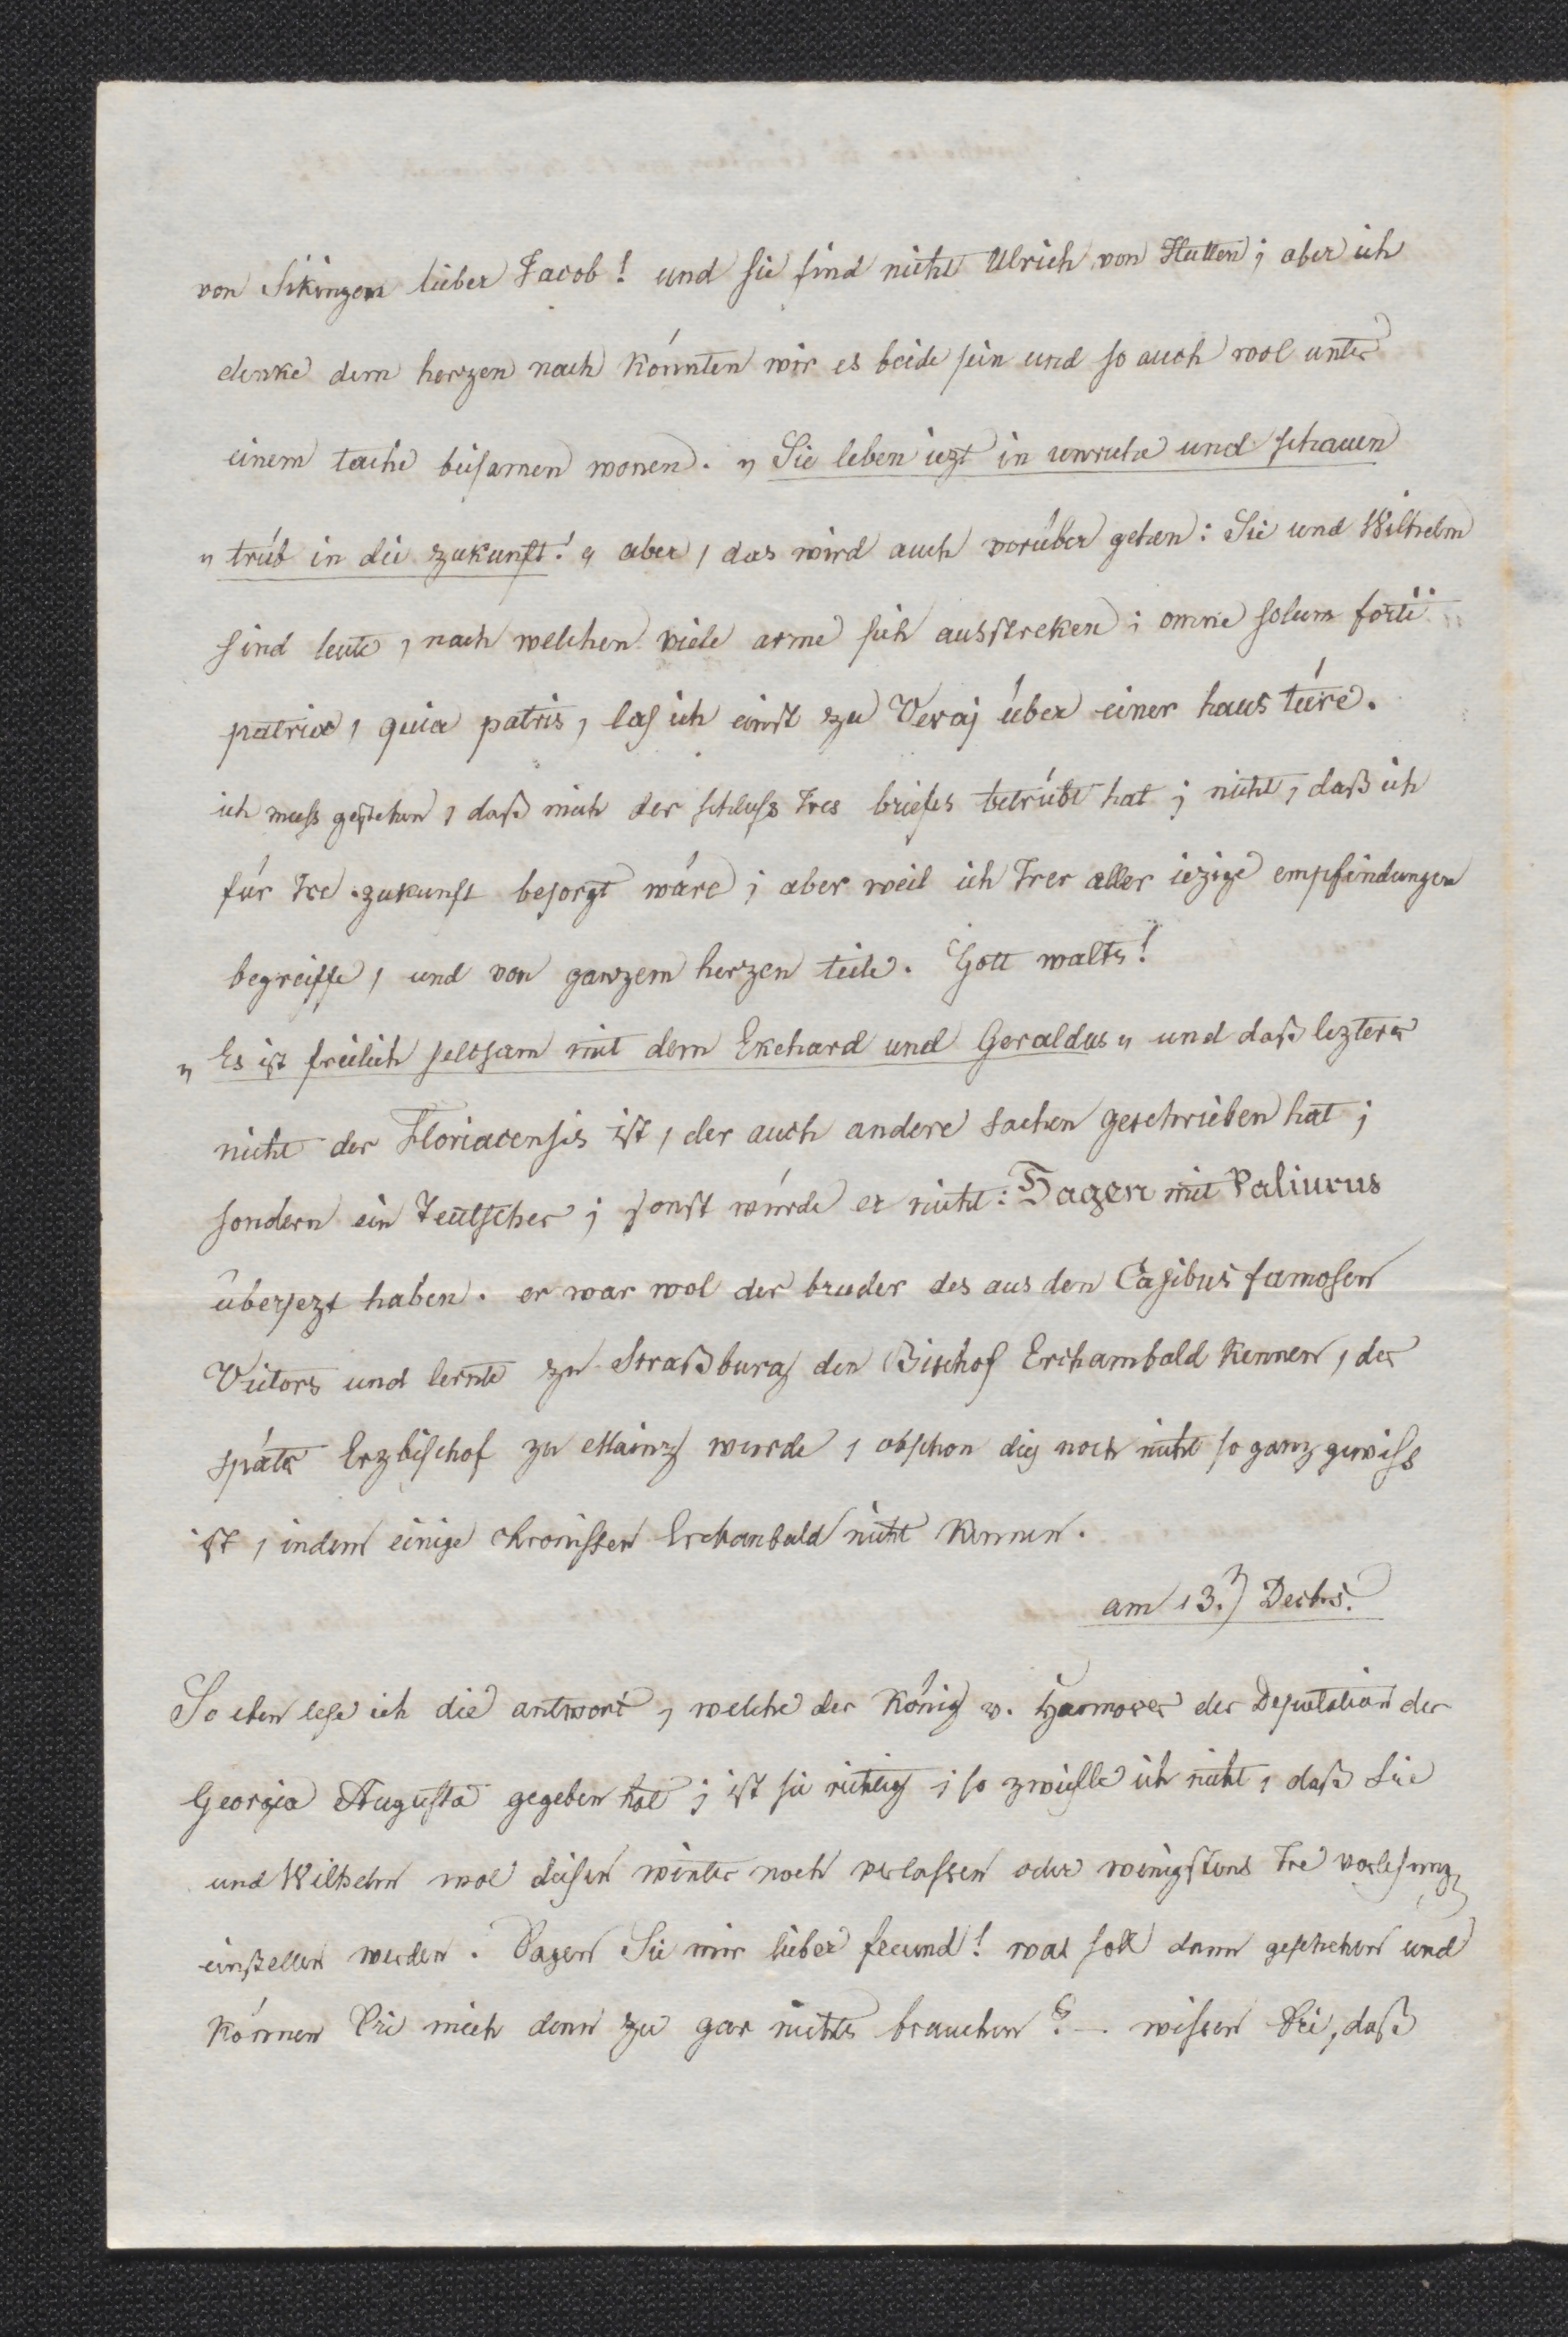 von Sikingen lieber Jacob! und sie sind nicht Ulrich von Hutten; aber ich
denke dem herzen nach könnten wir es beide sein und so auch wol unter
einem tache beisamen wonen. „ Sie leben iezt in unruhe und schauen
„ trüb in die zukunft! „ aber, das wird auch vorüber gehen: Sie und Wilhelm
sind leute, nach welchen viele arme sich ausstreken; omne solum forti
patria, quia patris, las ich einst zu Vevaj über einer haus türe.
ich muss gestehen, daß mich der schluss Ires briefes betrübt hat; nicht, daß ich
für Ire zukunft besorgt wäre; aber weil ich Irer aller iezige empfindungen
begreiffe, und von ganzem herzen teile. Gott walts!
„ Es ist freilich seltsam mit dem Ekehard und Geraldus „ und daß lezterer
nicht der Floriacensis ist, der auch andere sachen geschrieben hat;
sondern ein Teutscher; sonst würde er nicht: Hagen mit Paliurus
übersezt haben. er war wol der bruder des aus den Casibus famosen
Victors und lernte zu Straßburg den Bischof Erchambald kennen, der
später Erzbischof zu Mainz wurde, obschon dis noch nicht so ganz gewiss
ist, indem einige chronisten Erchanbald nicht kennen.
am 13.) Decbrs.
So eben lese ich die antwort, welche der König v. Hannover der Deputation der
Georgia Augusta gegeben hat; ist sie richtig; so zweifle ich nicht, daß Sie
und Wilhelm wol diesen winter noch verlassen oder wenigstens Ire vorlesung
einstellen werden. Sagen Sie mir lieber freund! was soll dann geschehen und
können Sie mich denn zu gar nichts brauchen? – wissen Sie, daß